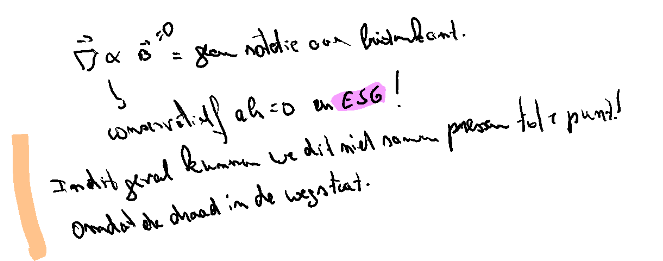 ∇⃗ × B⃗ =0 = geen rotatie aan buitenkant.
conservatief als =0 en ESG!
In dit geval kunnen we dit niet samen pressen tot 1 punt!
omdat de draad in de weg staat.